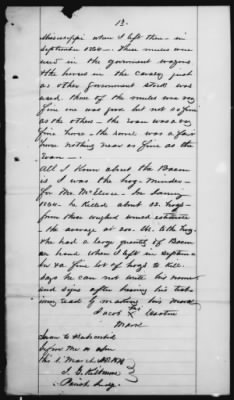 13.
Mississippi when I left then - in
September 1864 - These mules were
used in the government wagons
the horses in the cavalry just
as other government stock was
used. three of the mules was very
fine one was good but not so fine
as the others - the roan was a very
fine horse - the sorrel was a fair
horse nothing near as fine as the
roan -.
All I Know about the Bacon
is I was the hog-minder -
for Mr. McElwee - In January
1864 - he killed about 32. hogs -
from those weighed would estimate
the average at 200 lbs. to the hog
She had a large quantity of Bacon
on hand when I left in September
a fine lot of hogs to kill.
says he can not write his name
and signs after hearing his testi-
mony read by making his Mark
his
Jacob X
Mark
Sworn to & subscribed
before me on
this 1. March AD. 1873
Parish Judge